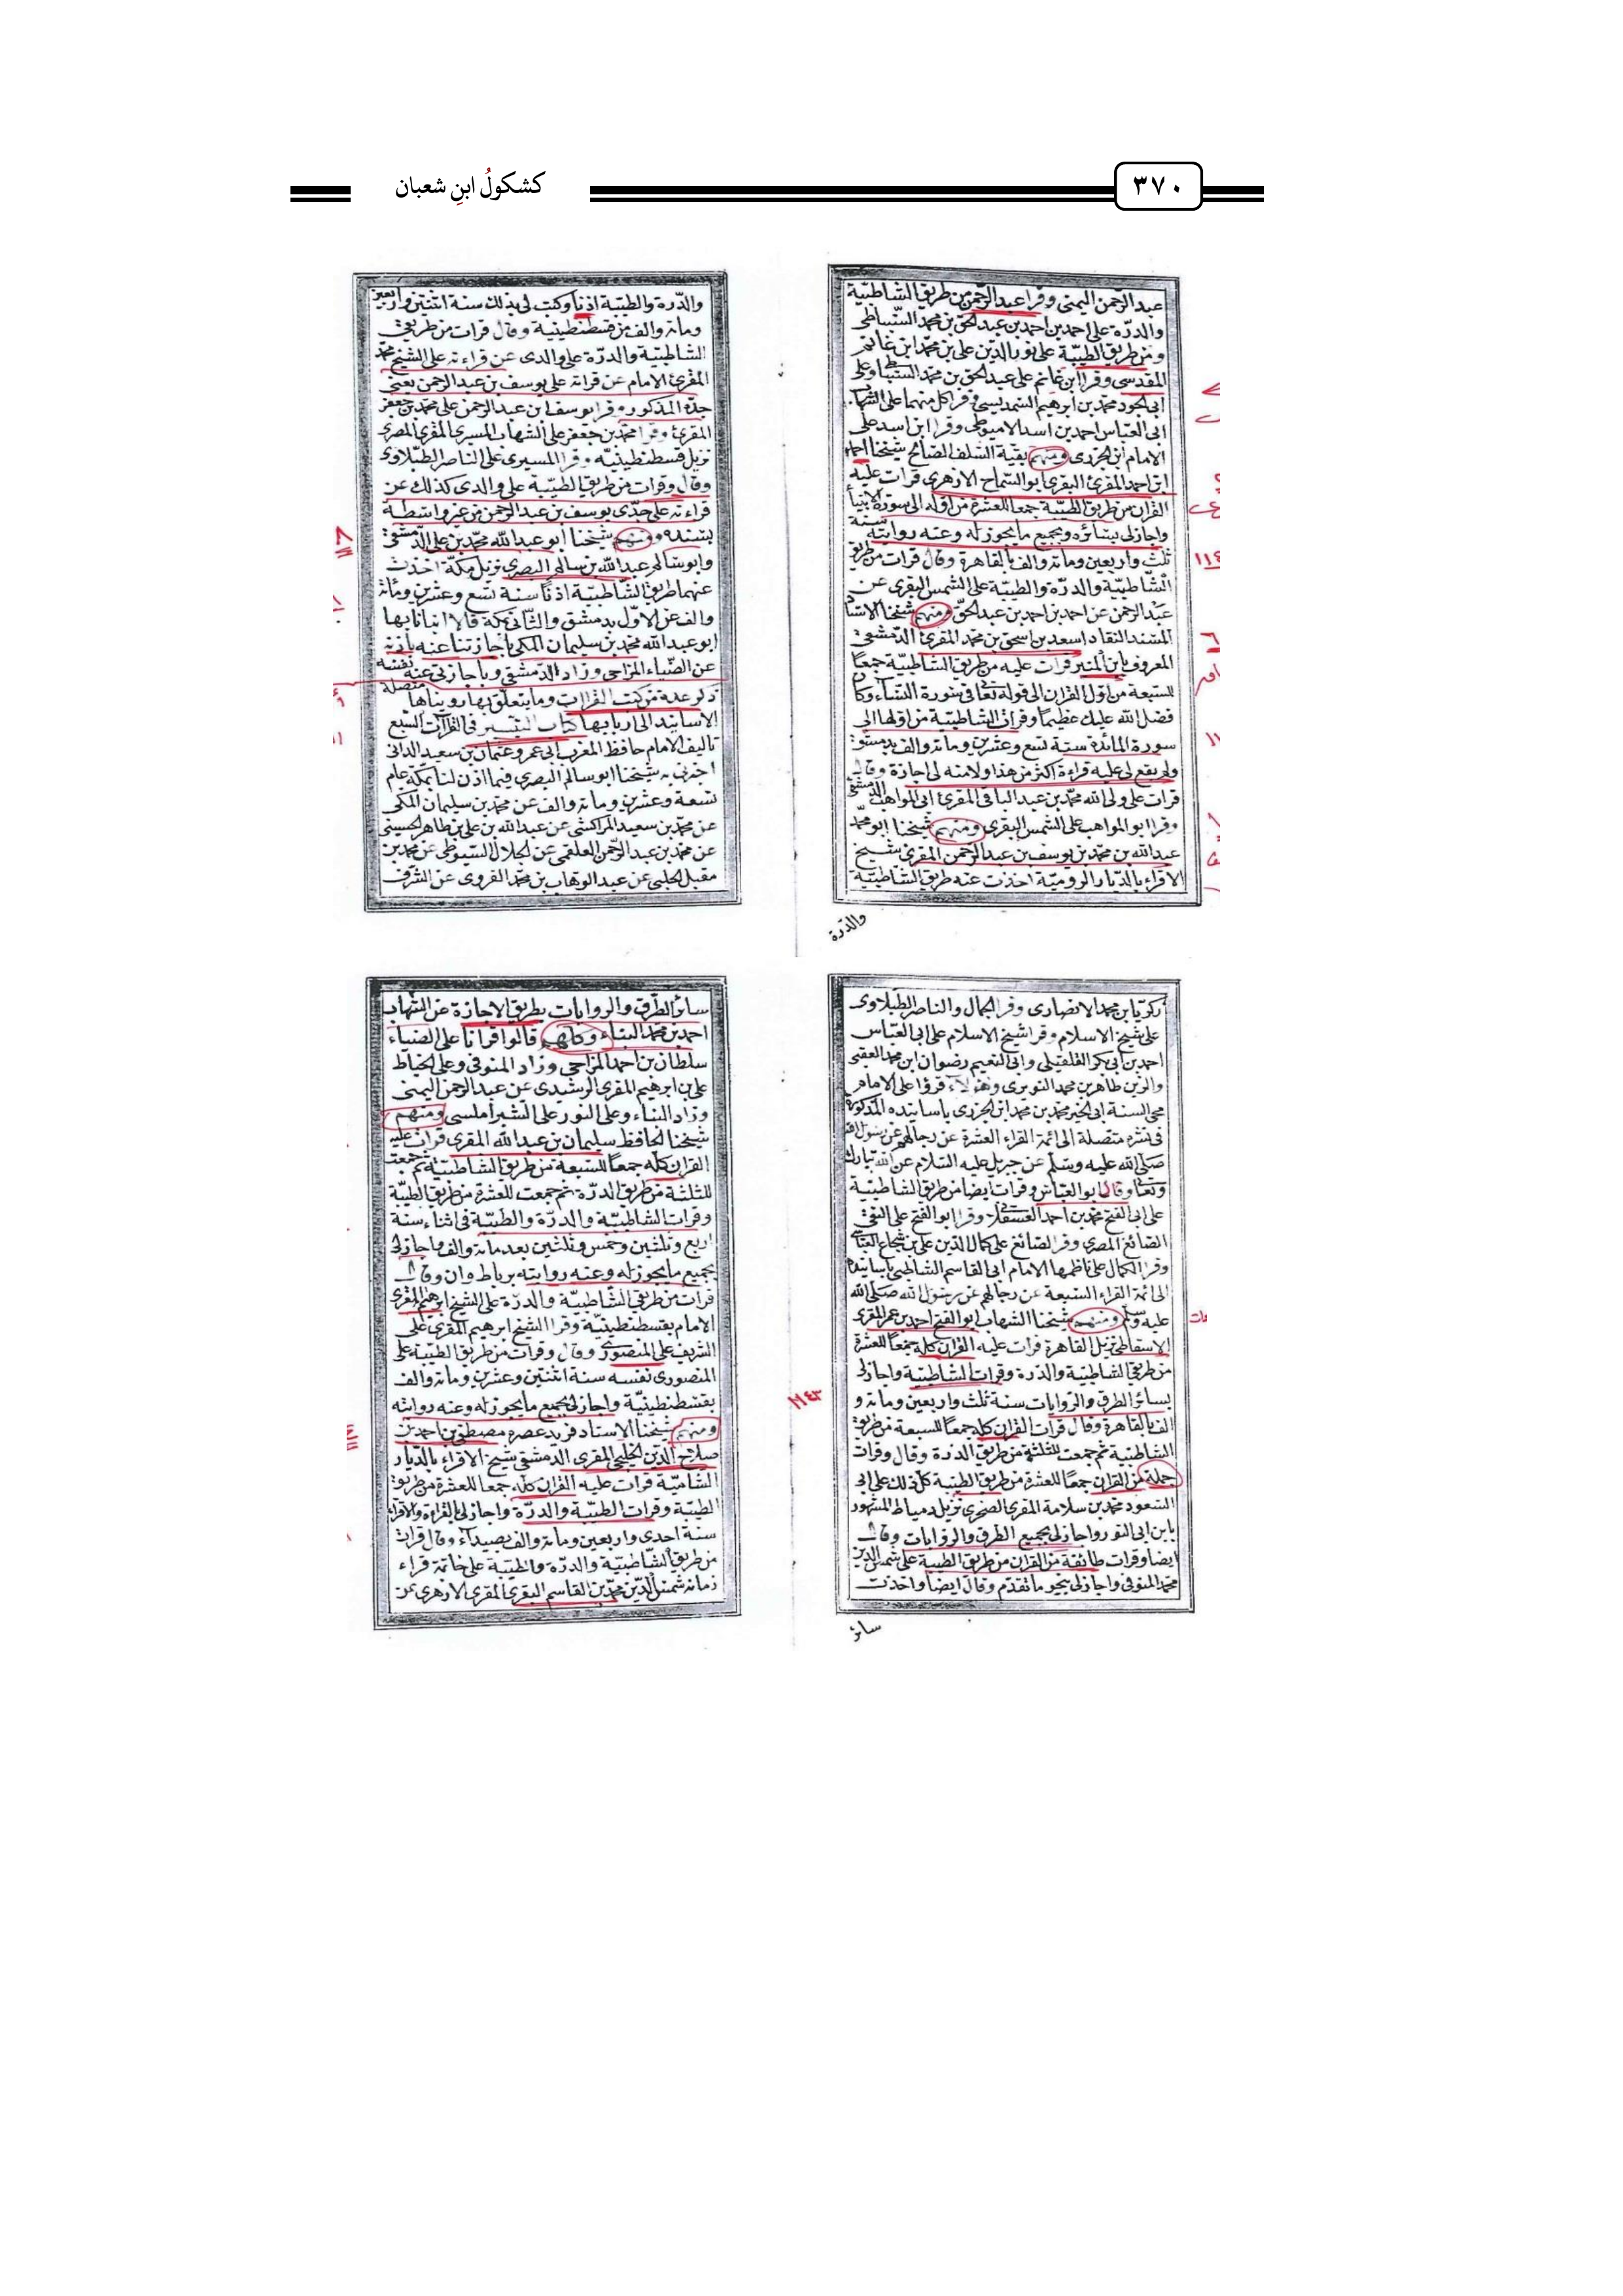 كشكولُ ابنِ شعبان
٣٧٠
عبد الرحمن اليمنى وقرا عبد الرحمن من طريق الشاطبية
والدرّة على احمد بن احمد بن عبد الحق بن محمد السنباطى
ومن طريق الطيّبة على نور الدين على بن محمد ابن غانم
المقدسى وقرا ابن غانم على عبد الحق بن محمد السنباطى وعلى
ابى الجود محمد بن ابرهيم السمديسى وقرا كل منهما على الشهاب
ابى العبّاس احمد بن اسد الاميوطى وقرا ابن اسد على
الامام ابن الجزرى ومنهم بقية السلف الصالح شيخنا احمد
ابن احمد المقرئ البقرى ابو السماح الازهرى قرات عليه
القران من طريق الطيّبة جمعا للعشرة من اوله الى سورة الانبيا
واجازلى بسائره وبجميع ما يجوز له وعنه روايته سنة
ثلث واربعين ومائة والف بالقاهرة وقال قرات من طريق
الشاطبية والدرّة والطيبة على الشمس البقرى عن
عبد الرحمن عن احمد بن احمد بن عبد الحقّ ومنهم شيخنا الاستاذ
المسند النقاد اسعد بن اسحق بن محمد المقرئ الدمشقى
المعروف بابن المنير قرات عليه من طريق الشاطبيّة جمعاً
للسبعة من اول القران الى قوله تعالى فى سورة النساء وكان
فضل الله عليك عظيماً وقرات الشاطبيّة من اولها الى
سورة المائدة سنة تسع وعشرين ومائة والف بدمشق
ولم يقع لى عليه قراءة اكثر من هذا ولا منه لى اجازة وقال
قرات على ولى الله محمد بن عبد الباقى المقرئ ابى المواهب الدمشقى
وقرا ابو المواهب على الشمس البقرى ومنهم شيخنا ابو محمد
عبد الله بن محمد بن يوسف بن عبد الرحمن المقرئ شيخ
الاقراء بالديار الروميّة اخذت عنه طريق الشاطبية
والدرّة
والدّرة والطيّبة اذناً وكتب لى بذلك سنة اثنتين واربعين
ومائة والف من قسطنطينية وقال قرات من طريقى
الشاطبيّة والدرّة على والدى عن قراءته على الشيخ محمد
المقرئ الامام عن قراته على يوسف بن عبد الرحمن يعنى
جدّه المذكور وقرا يوسف ابن عبد الرحمن على محمد بن جعفر
المقرئ وقرا محمد بن جعفر على الشهاب المسيرى المقرئ المصرى
نزيل قسطنطينيّه وقرا المسيرى على الناصر الطبلاوى
وقال وقرات من طريق الطيّبة على والدى كذلك عن
قراءته على جدّى يوسف بن عبد الرحمن من غير واسطة
بسنده ومنهم شيخنا ابو عبد الله محمد بن على الدمشقى
وابو سالم عبد الله بن سالم البصرى نزيل مكة اخذت
عنهما طريق الشاطبيّة اذناً سنة تسع وعشرين ومائة
والف عن الاوّل بدمشق والثانى بمكة قالا انبانا بها
ابو عبد الله محمد بن سليمان المكى باجازتنا عنه باذنه
عن الضياء المزاحى وزاد الدمشقى وباجازتى عنه نفسه
ذكر عدة من كتب القراات وما يتعلّق بها رويناها متصلة
الاسانيد الى اربابها كتاب التيسير فى القراات السبع
تاليف الامام حافظ المغرب ابى عمرو عثمان بن سعيد الدانى
اخبرنى به شيخنا ابو سالم البصرى فيما اذن لنا بمكة عام
تسعة وعشرين ومائة والف عن محمد بن سليمان المكى
عن محمد بن سعيد المراكشى عن عبد الله بن على بن طاهر الحسينى
عن محمد بن عبد الرحمن العلقمى عن الجلال السيوطى عن محمد بن
مقبل الحلبى عن عبد الوهاب بن محمد القروى عن الشرف
زكريا بن محمد الانصارى وقرا الجمال والناصر الطبلاوى
على شيخ الاسلام وقرا شيخ الاسلام على ابى العبّاس
احمد بن ابى بكر القلقيلى وابى النعيم رضوان ابن محمد العقبى
والزين طاهر بن محمد النويرى وهؤلاء قرؤا على الامام
محى السنة ابى الخير محمد بن محمد ابن الجزرى باسانيده المذكورة
فى نشره متصلة الى ائمة القراء العشرة عن رجالهم عن رسول الله
صلى الله عليه وسلم عن جبريل عليه السلام عن الله تبارك
وتعالى وقال ابو العباس وقرات ايضا من طريق الشاطبية
على ابى الفتح محمد بن احمد العسقلانى وقرا ابو الفتح على التقى
الصائغ المصرى وقرا الصائغ على كمال الدين على بن شجاع العباسى
وقرا الكمال على ناظمها الامام ابى القاسم الشاطبى باسانيده
الى ائمة القراء السبعة عن رجالهم عن رسول الله صلى الله
عليه وسلم ومنهم شيخنا الشهاب ابو الفتح احمد بن عمر المقرى
الاسقاطى نزيل القاهرة قرات عليه القران كله جمعاً للعشرة
من طريقى الشاطبية والدرة وقرات الشاطبية واجازلى
بسائر الطرق والروايات سنة ثلث واربعين ومائة و
الف بالقاهرة وقال قرات القران كله جمعاً للسبعة من طريق
الشاطبية ثم جمعت للثلثة من طريق الدرة وقال وقرات
جملة من القران جمعاً للعشرة من طريق الطيبة كل ذلك على ابى
السعود محمد بن سلامة المقرى الضرى نزيل دمياط المشهور
بابن ابى النور واجازلى بجميع الطرق والروايات وقال
ايضا وقرات طائفة من القران من طريق الطيبة على شمس الدين
محمد المنوفى واجازلى بنحو ما تقدم وقال ايضاً واخذت
سائر
١١٤٣
سائر الطرق والروايات بطريق الاجازة عن الشهاب
احمد بن محمد البناء وكلهم قالوا قرانا على الضياء
سلطان بن احمد المزاحى وزاد المنوفى وعلى الخياط
على بن ابرهيم المقرى الرشيدى عن عبد الرحمن اليمنى
وزاد البناء وعلى النور على الشبراملسى ومنهم
شيخنا الحافظ سليمان بن عبد الله المقرى قرات عليه
القران كله جمعاً للسبعة من طريق الشاطبيّة ثم جمعت
للثلثة من طريق الدرّة ثم جمعت للعشرة من طريق الطيّبة
وقرات الشاطبيّة والدرّة والطيّبة فى اثناء سنة
اربع وثلثين وخمس وثلثين بعد مائة والف واجازلى
بجميع ما يجوز له وعنه روايته برباط وان وقال
قرات من طريقى الشاطبيّة والدرّة على الشيخ ابرهيم المقرى
الامام بقسطنطينيّة وقرا الشيخ ابرهيم المقرى على
الشريف على المنصورى وقال وقرات من طريق الطيّبة على
المنصورى نفسه سنة اثنتين وعشرين ومائة والف
بقسطنطينيّة واجازلى بجميع ما يجوز له وعنه روايته
ومنهم شيخنا الاستاد فريد عصره مصطفى بن احمد بن
صلاح الدين الخليجى المقرى الدمشقى شيخ الاقراء بالديار
الشاميّة قرات عليه القران كله جمعا للعشرة من طريق
الطيبة وقرات الطيّبة والدرّة واجازلى بالقراءة والاقراء
سنة احدى واربعين ومائة والف بصيداء وقال قرات
من طريق الشاطبيّة والدرّة والطيبة على خاتمة قراء
زمانه شمس الدين محمد بن القاسم البقرى المقرى الازهرى عن